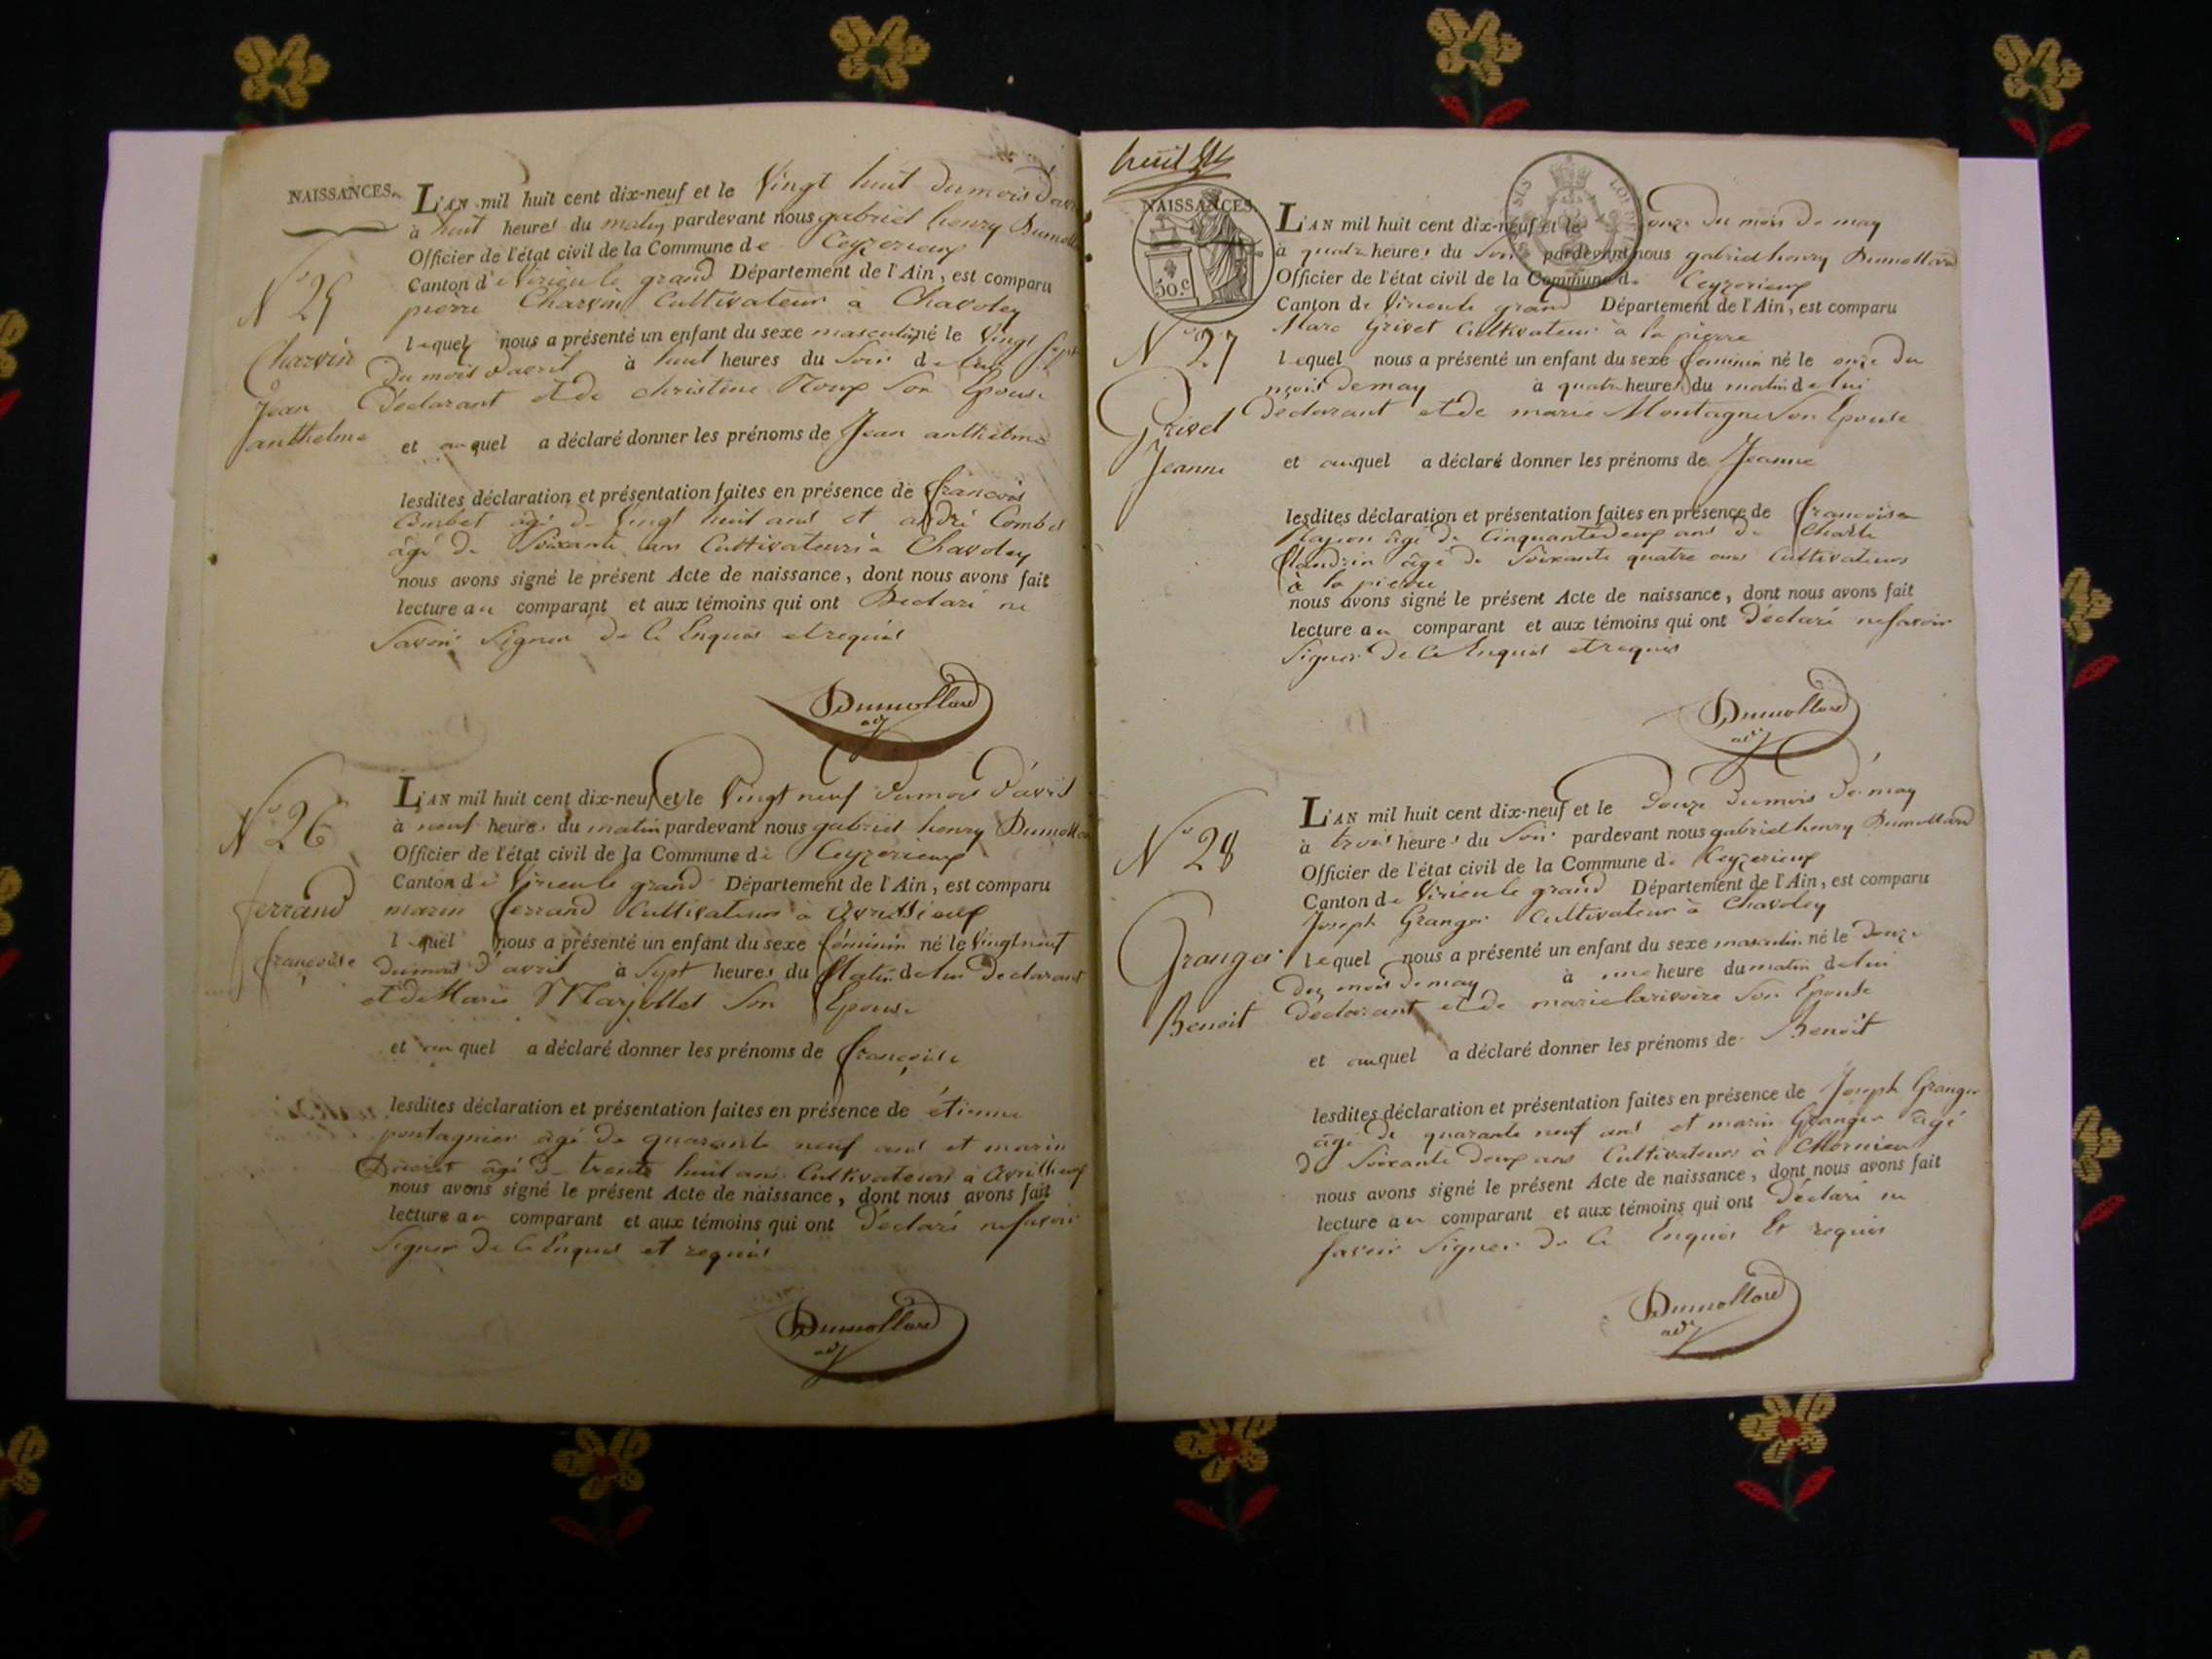 NAISSANCES.
L'AN mil huit cent dix-neuf et le Vingt huit du mois
à huit heures du matin pardevant nous gabriel henry
Officier de l'état civil de la Commune de Ceyzerieux
Canton de Virieu le grand Département de l'Ain, est comparu
pierre Charvin Cultivateur à Chavoley
lequel nous a présenté un enfant du sexe masculin né le Vingt sept
du mois d'avril à huit heures du Soir de lui
Déclarant et de christine Roux Son Epouse
et auquel a déclaré donner les prénoms de Jean anthelme
lesdites déclaration et présentation faites en présence de françois
Combet âgé de Vingt huit ans et andré Combet
âgé de Soixante ans Cultivateurs à Chavoley
nous avons signé le présent Acte de naissance, dont nous avons fait
lecture au comparant et aux témoins qui ont Déclaré ne
Savoir Signer de Ce Enquis et requis
N° 25
Charvin
Jean
anthelme
Dumollard
adj
N° 26
ferrand
françoise
L'AN mil huit cent dix-neuf et le Vingt neuf du mois d'avril
à neuf heures du matin pardevant nous gabriel henry Dumollard
Officier de l'état civil de la Commune de Ceyzerieux
Canton de Virieu le grand Département de l'Ain, est comparu
marin ferrand Cultivateur à avrissieux
lequel nous a présenté un enfant du sexe féminin né le Vingt neuf
du mois d'avril à Sept heures du Matin de lui Declarant
et de Marie Marjollet Son Epouse
et auquel a déclaré donner les prénoms de françoise
lesdites déclaration et présentation faites en présence de étienne
pontagnier âgé de quarante neuf ans et marin
âgé de trente huit ans Cultivateurs à
nous avons signé le présent Acte de naissance, dont nous avons fait
lecture au comparant et aux témoins qui ont Déclaré ne savoir
Signer de Ce Enquis et requis
Dumollard
adj
huit
NAISSANCES.
50.c
L'AN mil huit cent dix-neuf et le onze du mois de may
à quatre heures du Soir pardevant nous gabriel henry Dumollard
Officier de l'état civil de la Commune de Ceyzerieux
Canton de Virieu le grand Département de l'Ain, est comparu
Marc Grivet Cultivateur à la pierre
lequel nous a présenté un enfant du sexe feminin né le onze du
mois de may à quatre heures du matin de lui
Declarant et de marie Montagne Son Epouse
et auquel a déclaré donner les prénoms de Jeanne
lesdites déclaration et présentation faites en présence de
âgé de Cinquante deux ans de Charle
flandrin âgé de Soixante quatre ans Cultivateurs
à la pierre
nous avons signé le présent Acte de naissance, dont nous avons fait
lecture au comparant et aux témoins qui ont Déclaré ne savoir
Signer de Ce Enquis et requis
N° 27
Grivet
Jeanne
Dumollard
adj
N° 28
Granger
Benoit
L'AN mil huit cent dix-neuf et le Douze du mois de may
à trois heures du Soir pardevant nous gabriel henry Dumollard
Officier de l'état civil de la Commune de Ceyzerieux
Canton de Virieu le grand Département de l'Ain, est comparu
Joseph Granger Cultivateur à Chavoley
lequel nous a présenté un enfant du sexe masculin né le Douze
du mois de may à une heure du matin de lui
Declarant et de marie larivoire Son Epouse
et auquel a déclaré donner les prénoms de Benoit
lesdites déclaration et présentation faites en présence de Joseph Granger
âgé de quarante neuf ans et marin Granger âgé
de Soixante Deux ans Cultivateurs à
nous avons signé le présent Acte de naissance, dont nous avons fait
lecture au comparant et aux témoins qui ont Déclaré ne
savoir Signer de Ce Enquis Et requis
Dumollard
adj